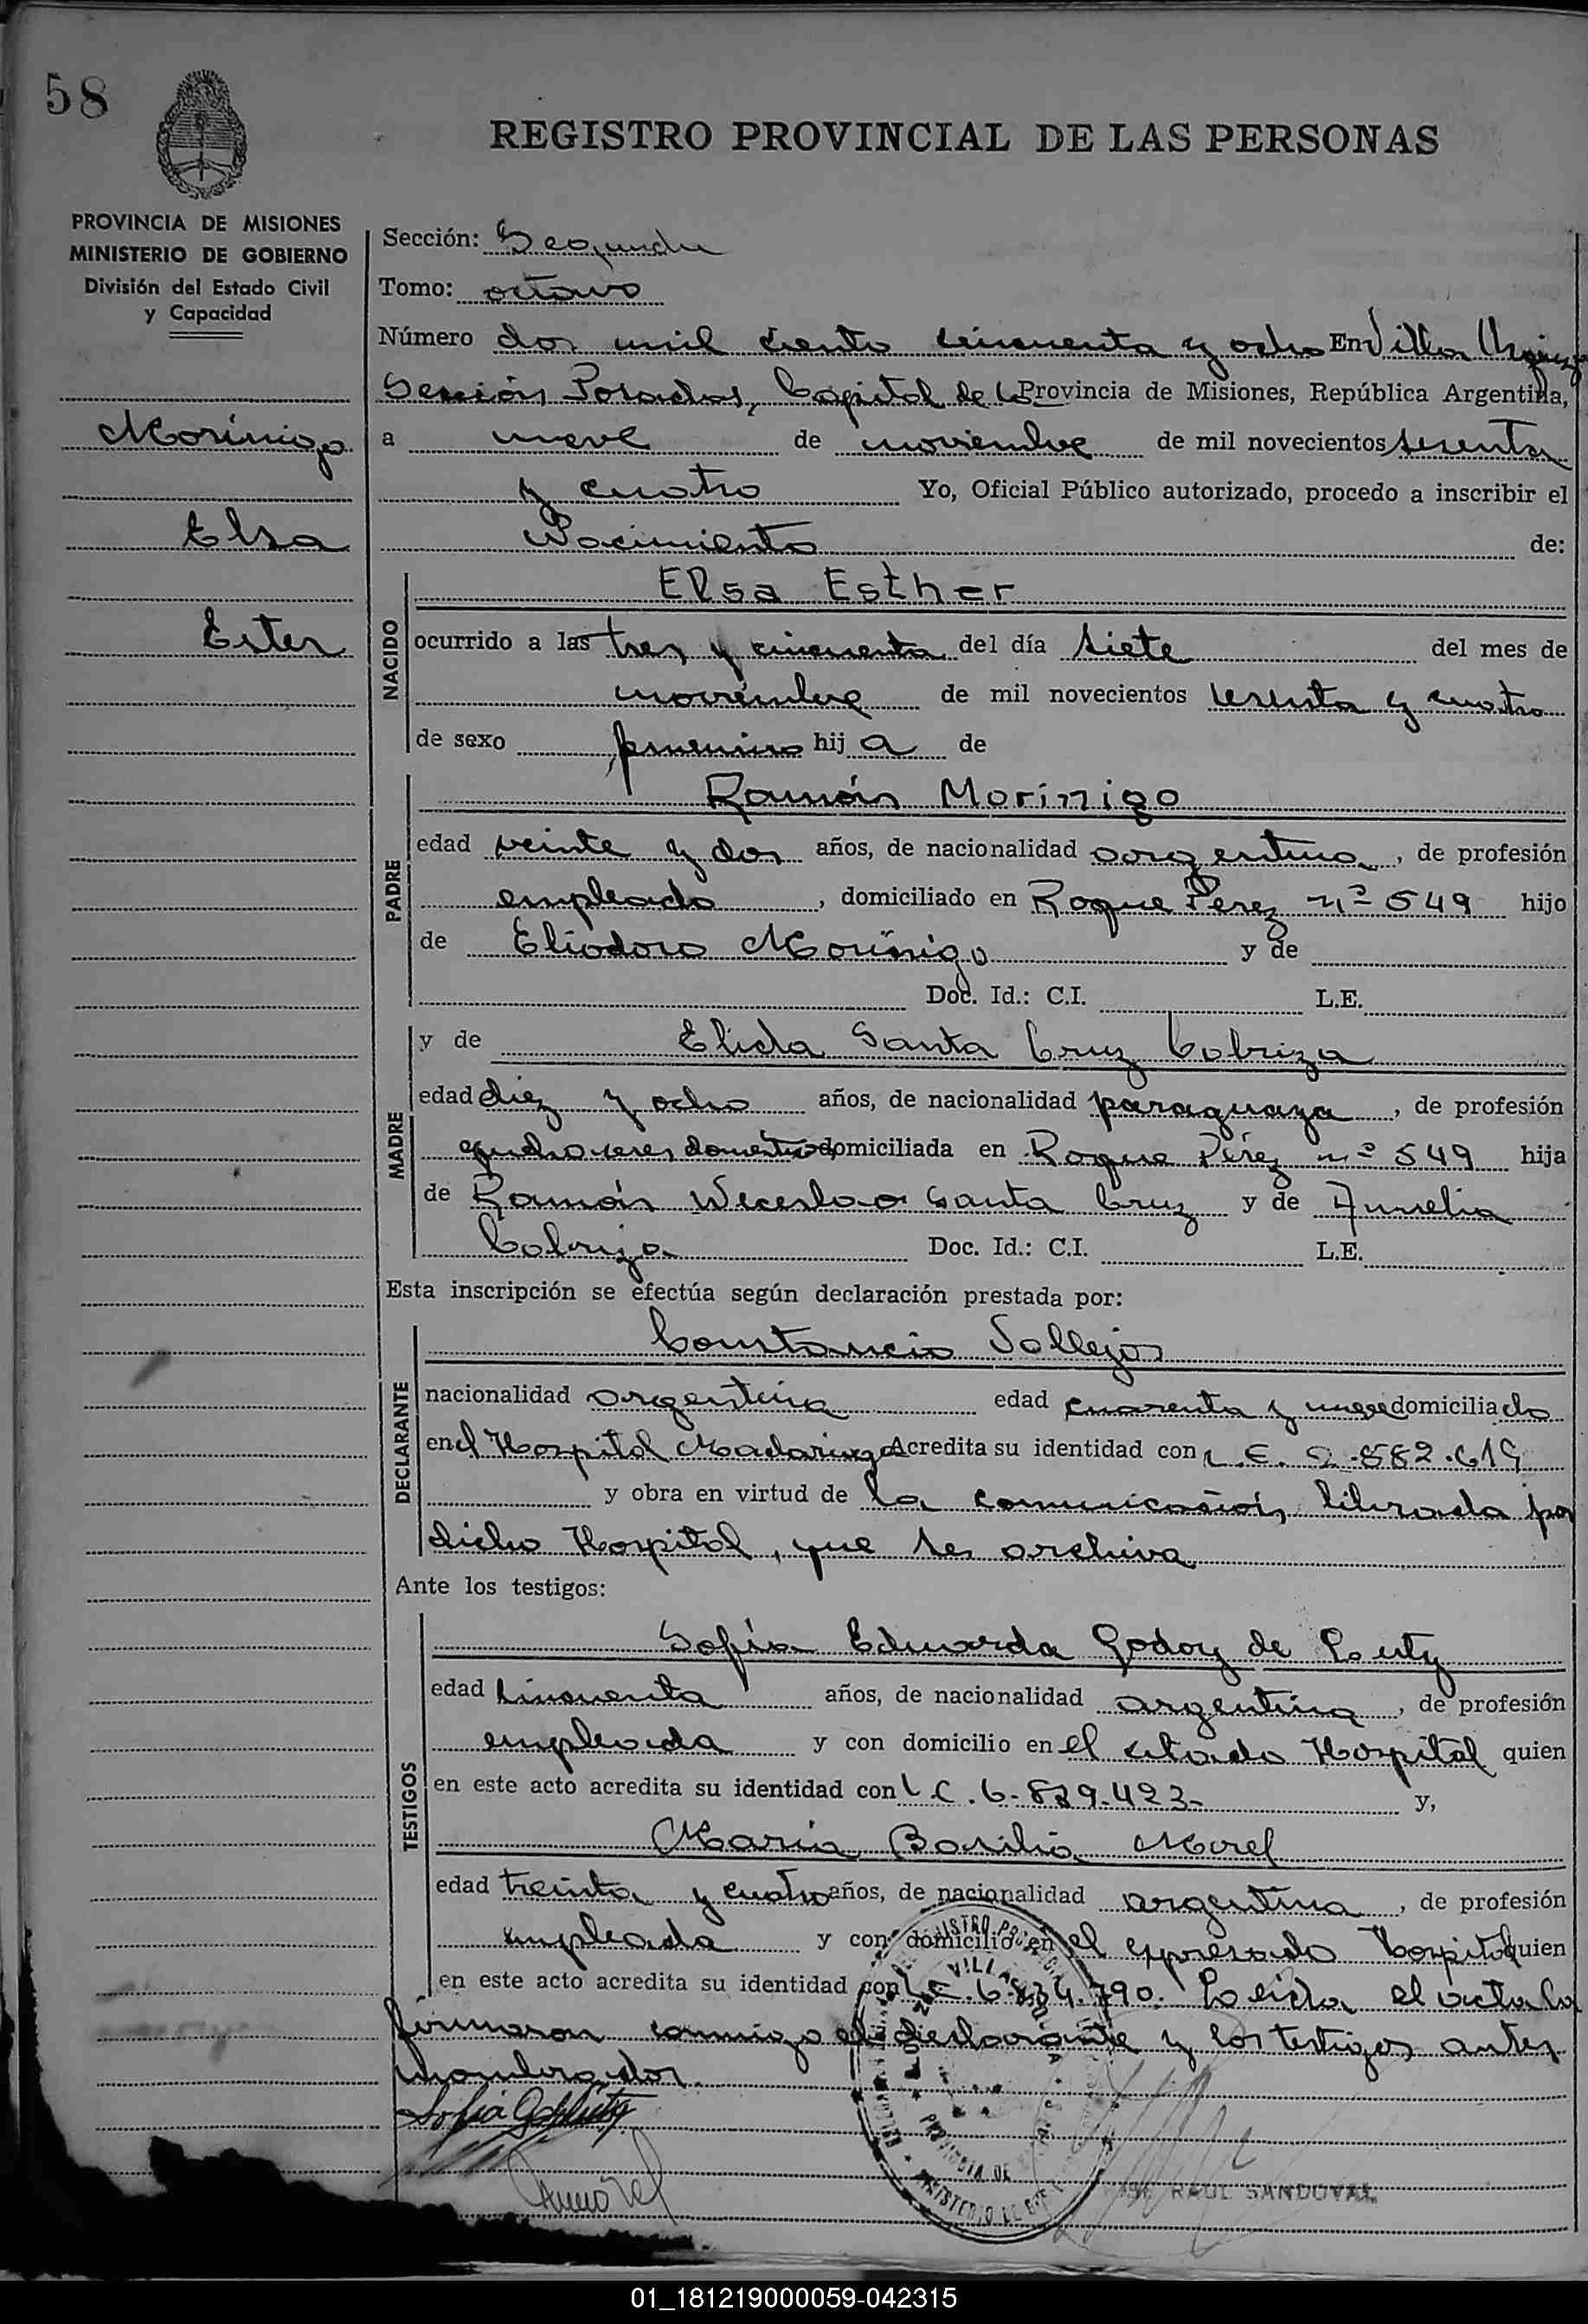 58
REGISTRO PROVINCIAL DE LAS PERSONAS
PROVINCIA DE MISIONES
MINISTERIO DE GOBIERNO
División del Estado Civil
y Capacidad
Morinigo
Elsa
Ester
Sección: Segunda
Tomo: octavo
Número dos mil ciento cincuenta y ocho En Villa Urquiza
Sección Posadas, Capital de la Provincia de Misiones, República Argentina,
a nueve de noviembre de mil novecientos sesenta
y cuatro Yo, Oficial Público autorizado, procedo a inscribir el
Nacimiento de:
NACIDO
Elsa Esther
ocurrido a las tres y cincuenta del día siete del mes de
noviembre de mil novecientos sesenta y cuatro
de sexo femenino hija de
PADRE
Ramón Morinigo
edad veinte y dos años, de nacionalidad argentina, de profesión
empleado, domiciliado en Roque Pérez nº 549 hijo
de Eliodoro Morinigo y de
Doc. Id.: C.I. L.E.
MADRE
y de Elida Santa Cruz Cabriza
edad diez y ocho años, de nacionalidad paraguaya, de profesión
quehaceres domésticos domiciliada en Roque Pérez nº 549 hija
de Ramón Weceslao Santa Cruz y de Aurelia
Cabriza Doc. Id.: C.I. L.E.
Esta inscripción se efectúa según declaración prestada por:
DECLARANTE
Constancio Vallejos
nacionalidad argentina edad cuarenta y nueve domiciliado
en el Hospital Madariaga Acredita su identidad con L.E. 2.582.619
y obra en virtud de la comunicación librada por
dicho Hospital, que se archiva
Ante los testigos:
TESTIGOS
Sofía Eduarda Godoy de Leuty
edad cincuenta años, de nacionalidad argentina, de profesión
empleada y con domicilio en el citado Hospital quien
en este acto acredita su identidad con L.C. 6.839.423- y,
María Basilia Morel
edad treinta y cuatro años, de nacionalidad argentina, de profesión
empleada y con domicilio en el expresado Hospital quien
en este acto acredita su identidad con L.C. Leida el acta la
firmaron conmigo el declarante y los testigos antes
nombrados.
RAUL SANDOVAL
01_181219000059-042315